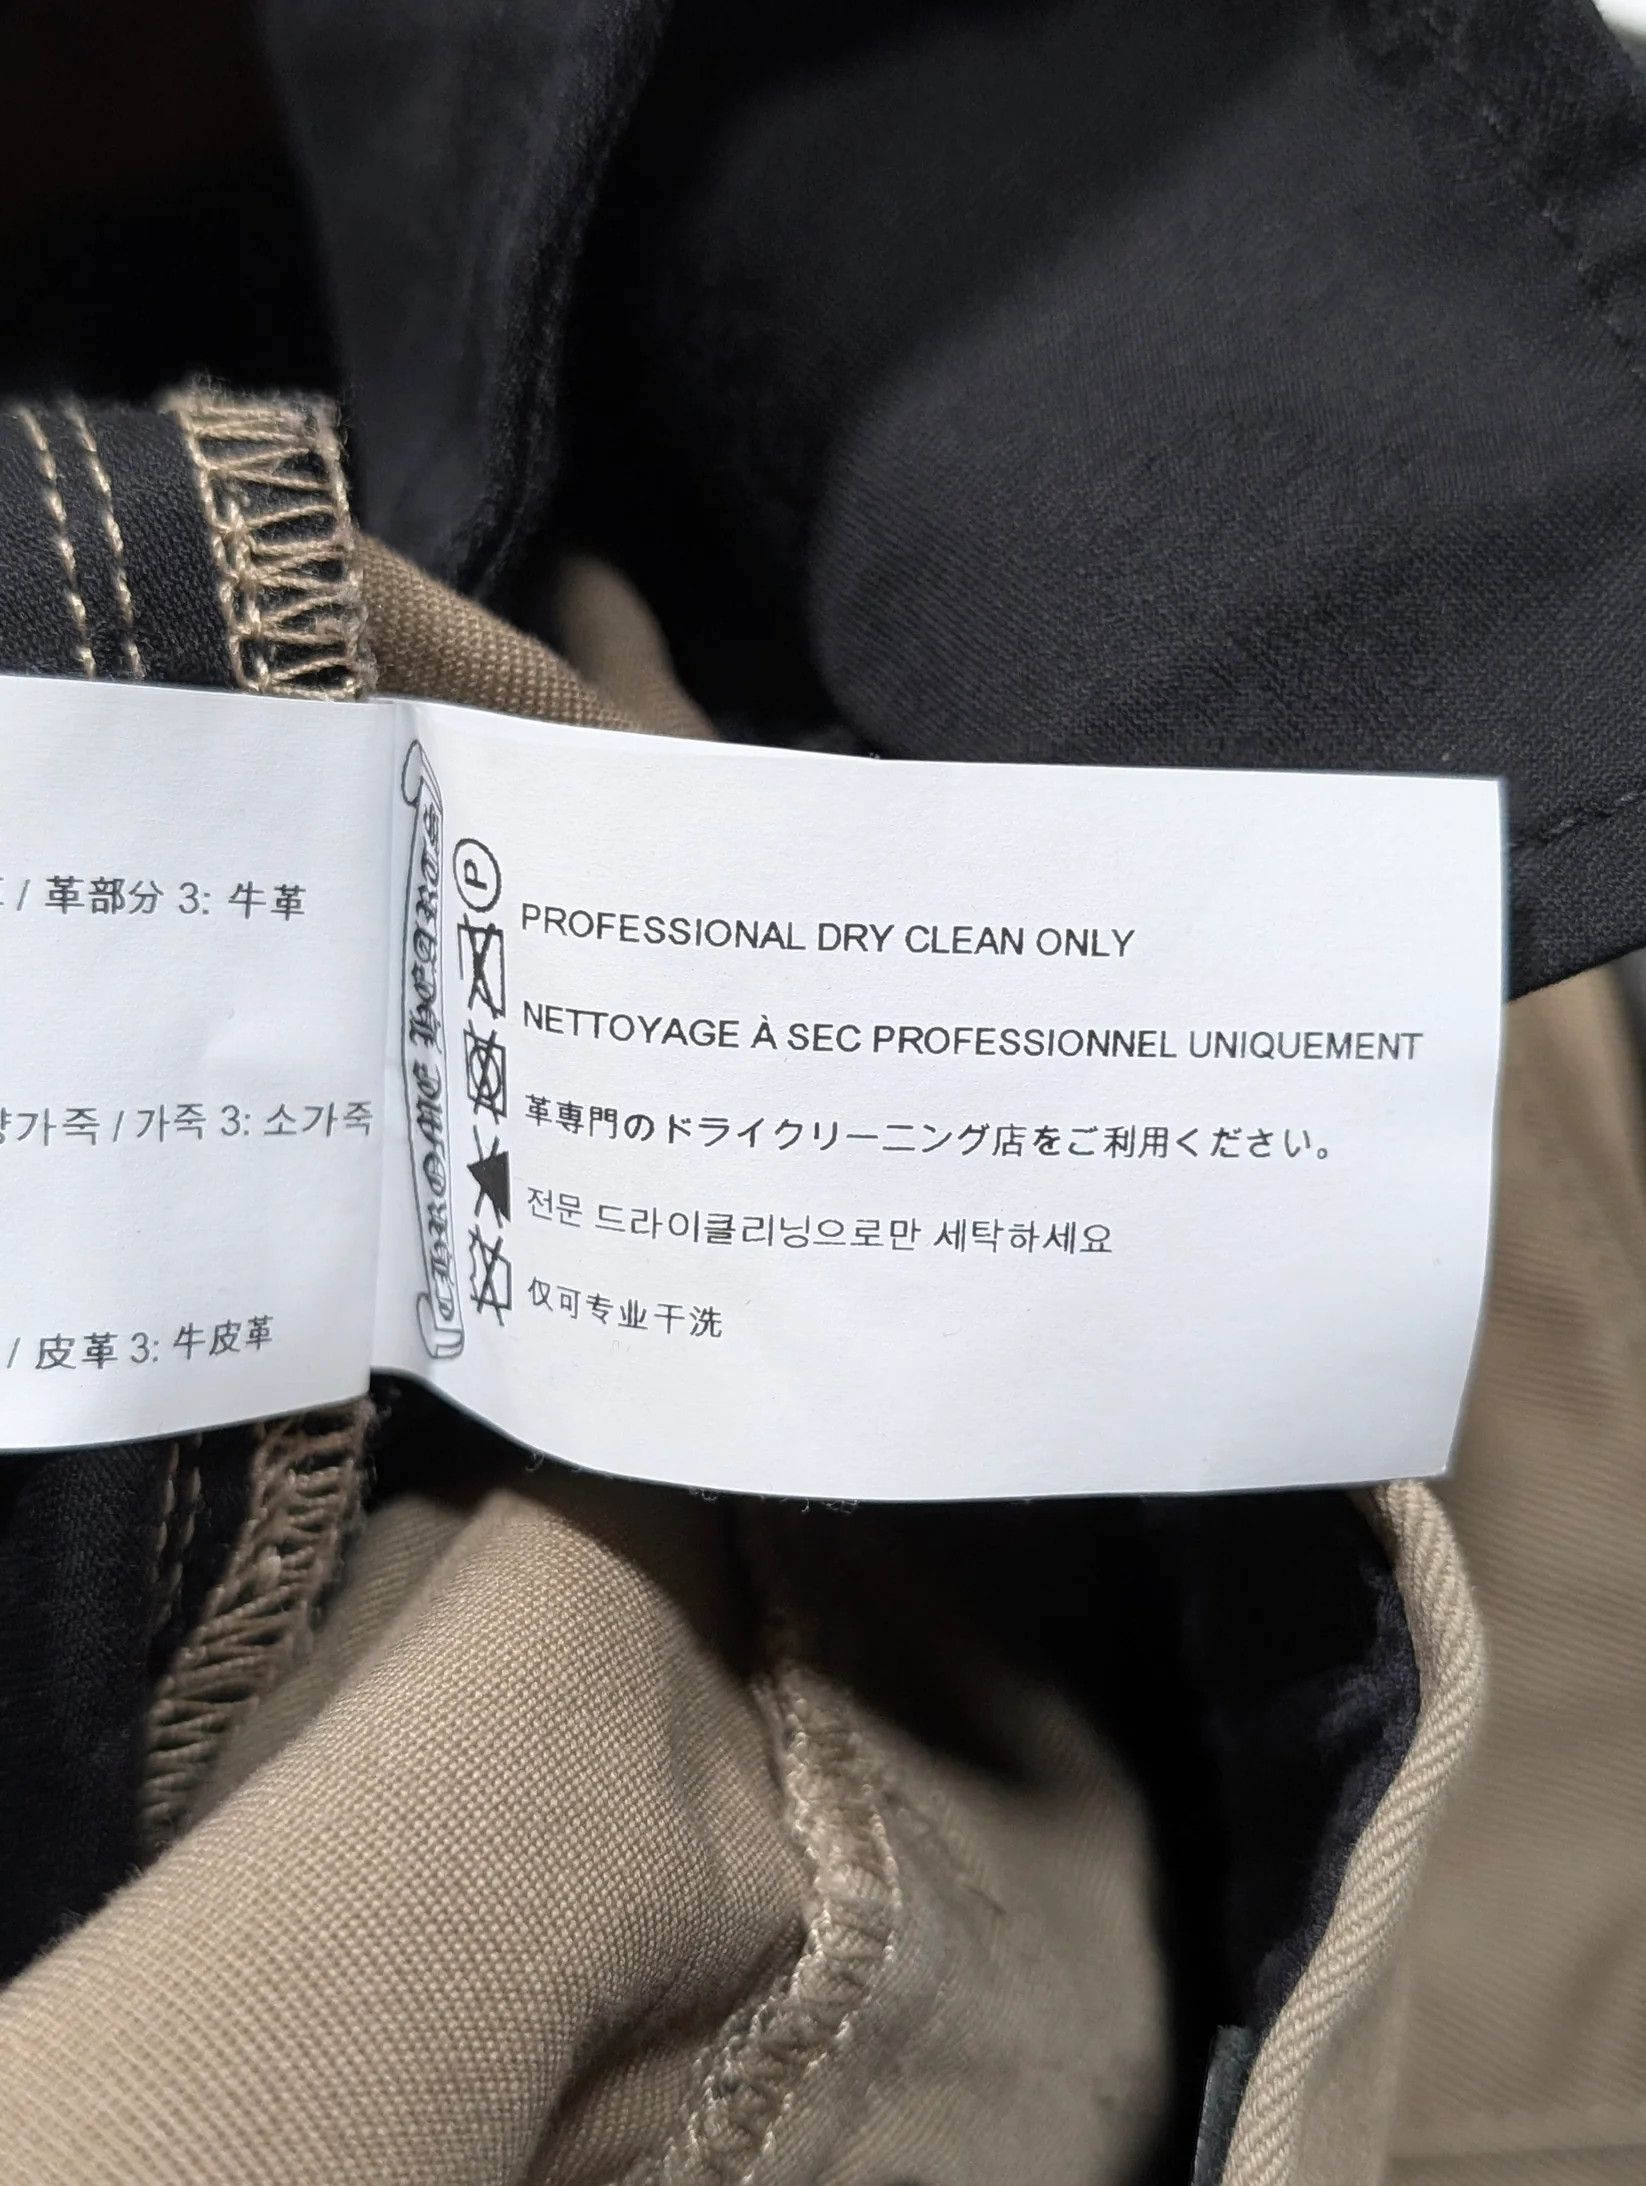 / 革部分 3: 牛革
가죽 / 가죽 3: 소가죽
/ 皮革 3: 牛皮革
P
PROFESSIONAL DRY CLEAN ONLY
NETTOYAGE À SEC PROFESSIONNEL UNIQUEMENT
革専門のドライクリーニング店をご利用ください。
전문 드라이클리닝으로만 세탁하세요
仅可专业干洗